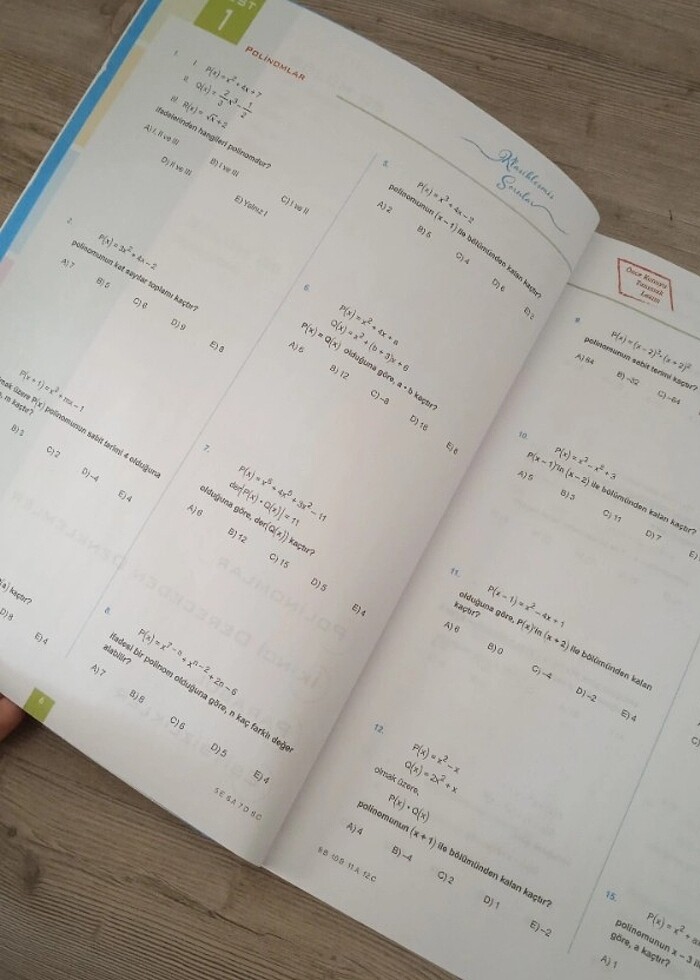 1
POLİNOMLAR
1.
I. P(x) = x² + 4x + 7
II. Q(x) = 2/3 x³ - 1/2
III. R(x) = √x + 2
ifadelerinden hangileri polinomdur?
A) I, II ve III
B) I ve III
C) I ve II
D) II ve III
E) Yalnız I
2.
P(x) = 3x² + 4x - 2
polinomunun kat sayılar toplamı kaçtır?
A) 7
B) 5
C) 6
D) 9
E) 8
P(x + 1) = x² + mx - 1
üzere P(x) polinomunun sabit terimi 4 olduğuna
m kaçtır?
B) 3
C) 2
D) -4
E) 4
kaçtır?
D) 8
E) 4
6
Klasiklermiş
Sorular
5.
P(x) = x³ + 4x - 2
polinomunun (x - 1) ile bölümünden kalan kaçtır?
A) 2
B) 5
C) 4
D) 6
E) 3
6.
P(x) = x² + 4x + a
Q(x) = x² + (b + 3)x + 6
P(x) = Q(x) olduğuna göre, a + b kaçtır?
A) 6
B) 12
C) -8
D) 16
7.
der[P(x) · Q(x)] = 11
olduğuna göre, der(Q(x)) kaçtır?
A) 6
B) 12
C) 15
D) 5
E) 4
8.
ifadesi bir polinom olduğuna göre, n kaç farklı değer
alabilir?
A) 7
B) 8
C) 6
D) 5
E) 4
9.
polinomunun sabit terimi kaçtır?
A) 64
B) -32
C) -64
10.
P(x - 1)'in (x - 2) ile bölümünden kalan kaçtır?
A) 5
B) 3
C) 11
D) 7
11.
P(x - 1) = x² - 4x + 1
olduğuna göre, P(x)'in (x + 2) ile bölümünden kalan
kaçtır?
A) 6
B) 0
C) -4
D) -2
E) 4
12.
P(x) = x² - x
Q(x) = 2x² + x
olmak üzere,
P(x) · Q(x)
polinomunun (x + 1) ile bölümünden kalan kaçtır?
A) 4
B) -4
C) 2
D) 1
E) -2
15.
polinomunun x - 3
göre, a kaçtır?
A) 1